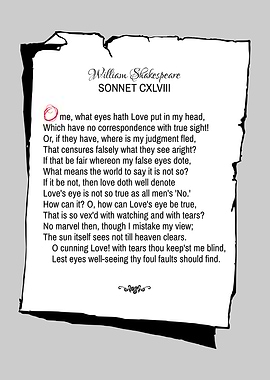 William Shakespeare
SONNET CXLVIII
O me, what eyes hath Love put in my head,
Which have no correspondence with true sight!
Or, if they have, where is my judgment fled,
That censures falsely what they see aright?
If that be fair whereon my false eyes dote,
What means the world to say it is not so?
If it be not, then love doth well denote
Love's eye is not so true as all men's 'No.'
How can it? O, how can Love's eye be true,
That is so vex'd with watching and with tears?
No marvel then, though I mistake my view;
The sun itself sees not till heaven clears.
O cunning Love! with tears thou keep'st me blind,
Lest eyes well-seeing thy foul faults should find.